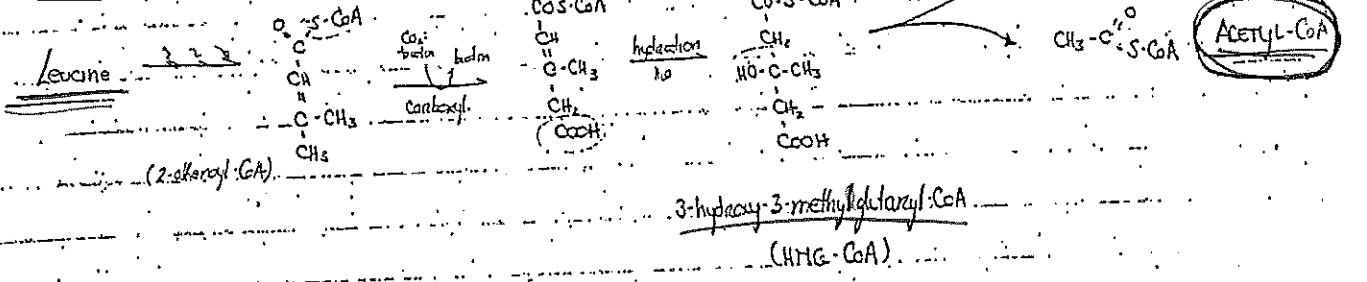 Leucine
1 2 3
O S-CoA
C
CH
C-CH3
CH3
(2-alkenoyl-CoA)
CO2-
biotin biotin
Carboxyl.
COS-CoA
CH
C-CH3
CH2
COOH
hydration
CO-S-CoA
CH2
HO-C-CH3
CH2
COOH
3-hydroxy-3-methylglutaryl-CoA
(HMG-CoA)
O
CH3-C S-CoA
ACETYL-CoA